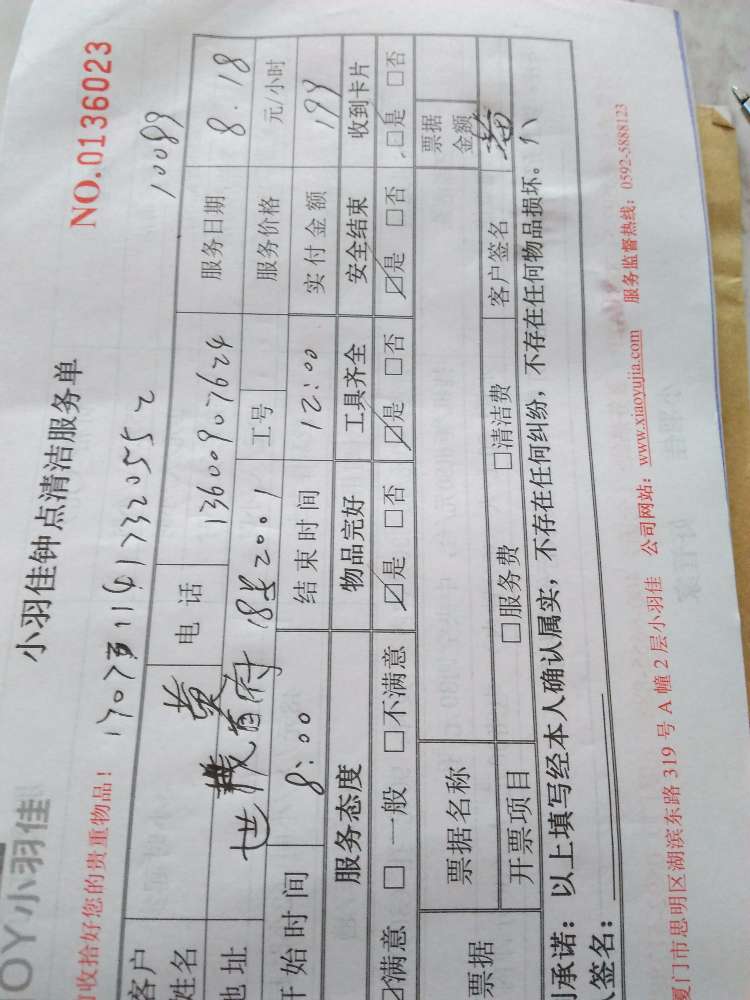 OY小羽佳
小羽佳钟点清洁服务单
NO.0136023
收拾好您的贵重物品！
10089
客户姓名 黄 电话 13600907624 服务日期 8.18
地址 18#2001 工号 服务价格 元/小时
开始时间 8:00 结束时间 12:00 实付金额 199
服务态度 物品完好 工具齐全 安全结束 收到卡片
☑满意 □一般 □不满意 ☑是 □否 ☑是 □否 ☑是 □否 □是 □否
票据 票据名称 票据金额
开票项目 □服务费 □清洁费 客户签名
承诺：以上填写经本人确认属实，不存在任何纠纷，不存在任何物品损坏。
签名：
厦门市思明区湖滨东路 319 号 A 幢 2 层小羽佳 公司网站：www.xiaoyujia.com 服务监督热线：0592-5888123